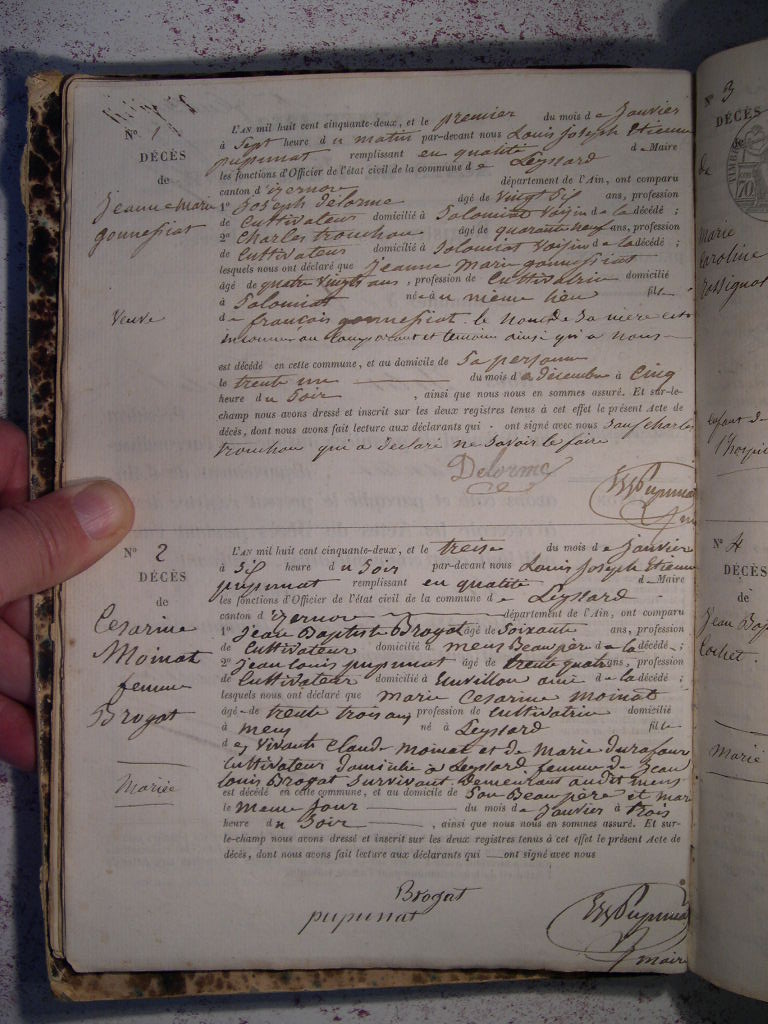 N° 1
DÉCÈS
de
Jeanne Marie
gonnessiat
Veuve
L'AN mil huit cent cinquante-deux, et le premier du mois de Janvier
à Sept heure du matin par-devant nous Louis Joseph Etienne
pupunat remplissant en qualité de Maire
les fonctions d'Officier de l'état civil de la commune de Leyssard
canton d'izernore département de l'Ain, ont comparu
1° Joseph delorme âgé de Vingt Six ans, profession
de Cultivateur domicilié à Solomiat Voisin de la décédé ;
2° Charles trouchou âgé de quarante neuf ans, profession
de Cultivateur domicilié à Solomiat Voisin de la décédé ;
lesquels nous ont déclaré que Jeanne Marie gonnessiat
âgé de quatre Vingts ans, profession de Cultivatrice domicilié
à Solomiat né à u meme lieu fille
de françois gonnessiat. le Nom De Sa mère est
inconnu au Comparant et temoins ainsi qu'a nous
est décédé en cette commune, et au domicile de Sa personne
le trente un du mois de décembre à Cinq
heure du Soir, ainsi que nous nous en sommes assuré. Et sur-le-
champ nous avons dressé et inscrit sur les deux registres tenus à cet effet le présent Acte de
décès, dont nous avons fait lecture aux déclarants qui ont signé avec nous Sauf Charles
trouchou qui a declaré ne Savoir le faire
Delorme
Pupunat
N° 2
DÉCÈS
de
Cesarine
Moinat
femme
Brogat
Mariée
L'AN mil huit cent cinquante-deux, et le treise du mois de Janvier
à Six heure du Soir par-devant nous Louis Joseph Etienne
pupunat remplissant en qualité de Maire
les fonctions d'Officier de l'état civil de la commune de Leyssard
canton d'izernore département de l'Ain, ont comparu
1° Jean Baptiste Brogat âgé de Soixante ans, profession
de Cultivateur domicilié à mens Beaupère de la décédé ;
2° Jean Louis pupunat âgé de trente quatre ans, profession
de Cultivateur domicilié à ami de la décédé ;
lesquels nous ont déclaré que marie Cesarine moinat
âgé de trente trois ans profession de Cultivatrice domicilié
à mens né à Leyssard fille
des Vivants Claude Moinat et de Marie durafour
Cultivateur domicilié à Leyssard femme de Jean
Louis Brogat Survivant. Demeurant audit mens
est décédé en cette commune, et au domicile de Son Beau père et mar
le meme Jour du mois de Janvier à trois
heure du Soir, ainsi que nous nous en sommes assuré. Et sur-
le-champ nous avons dressé et inscrit sur les deux registres tenus à cet effet le présent Acte de
décès, dont nous avons fait lecture aux déclarants qui ont signé avec nous
Brogat
pupunat
Pupunat
maire
N° 3
DÉCÈS
de
marie
Caroline
Rossignol
enfant de
l'hospi
N° 4
DÉCÈS
de
Jean Bap
Cochet
Marié
70